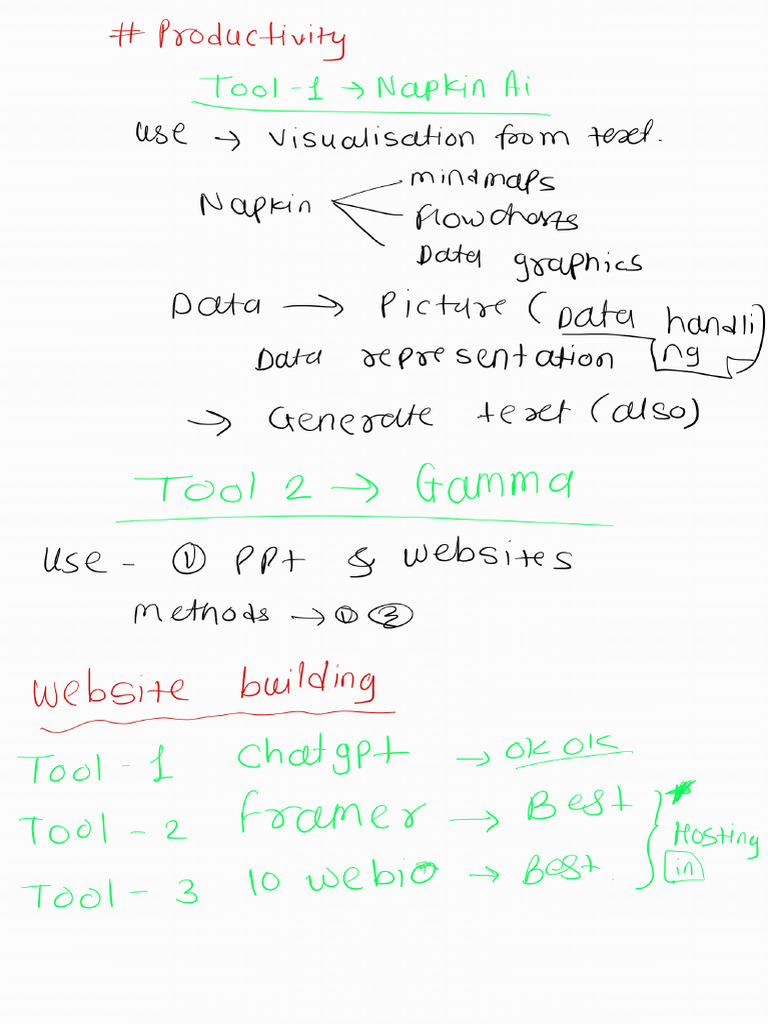 # Productivity
Tool-1 → Napkin Ai
use → visualisation from text.
Napkin
mindmaps
flowcharts
Data graphics
Data → Picture (Data handling)
Data representation
→ Generate text (also)
Tool 2 → Gamma
use - ① PPt & websites
methods → ①
website building
Tool-1 chatgpt → ok ok
Tool-2 framer → Best
Tool-3 10 webio → Best.
* Hosting
in